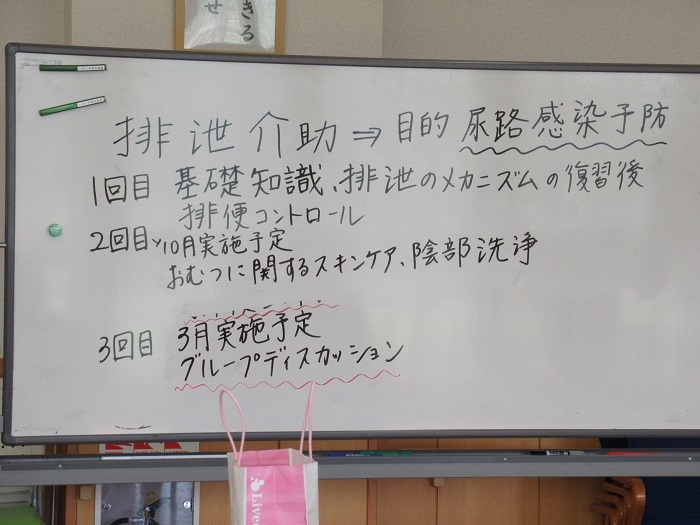 きる
せ
排泄介助⇒目的 尿路感染予防
1回目 基礎知識、排泄のメカニズムの復習後
排便コントロール
2回目 10月実施予定
おむつに関するスキンケア、陰部洗浄
3回目 3月実施予定
グループディスカッション
Live